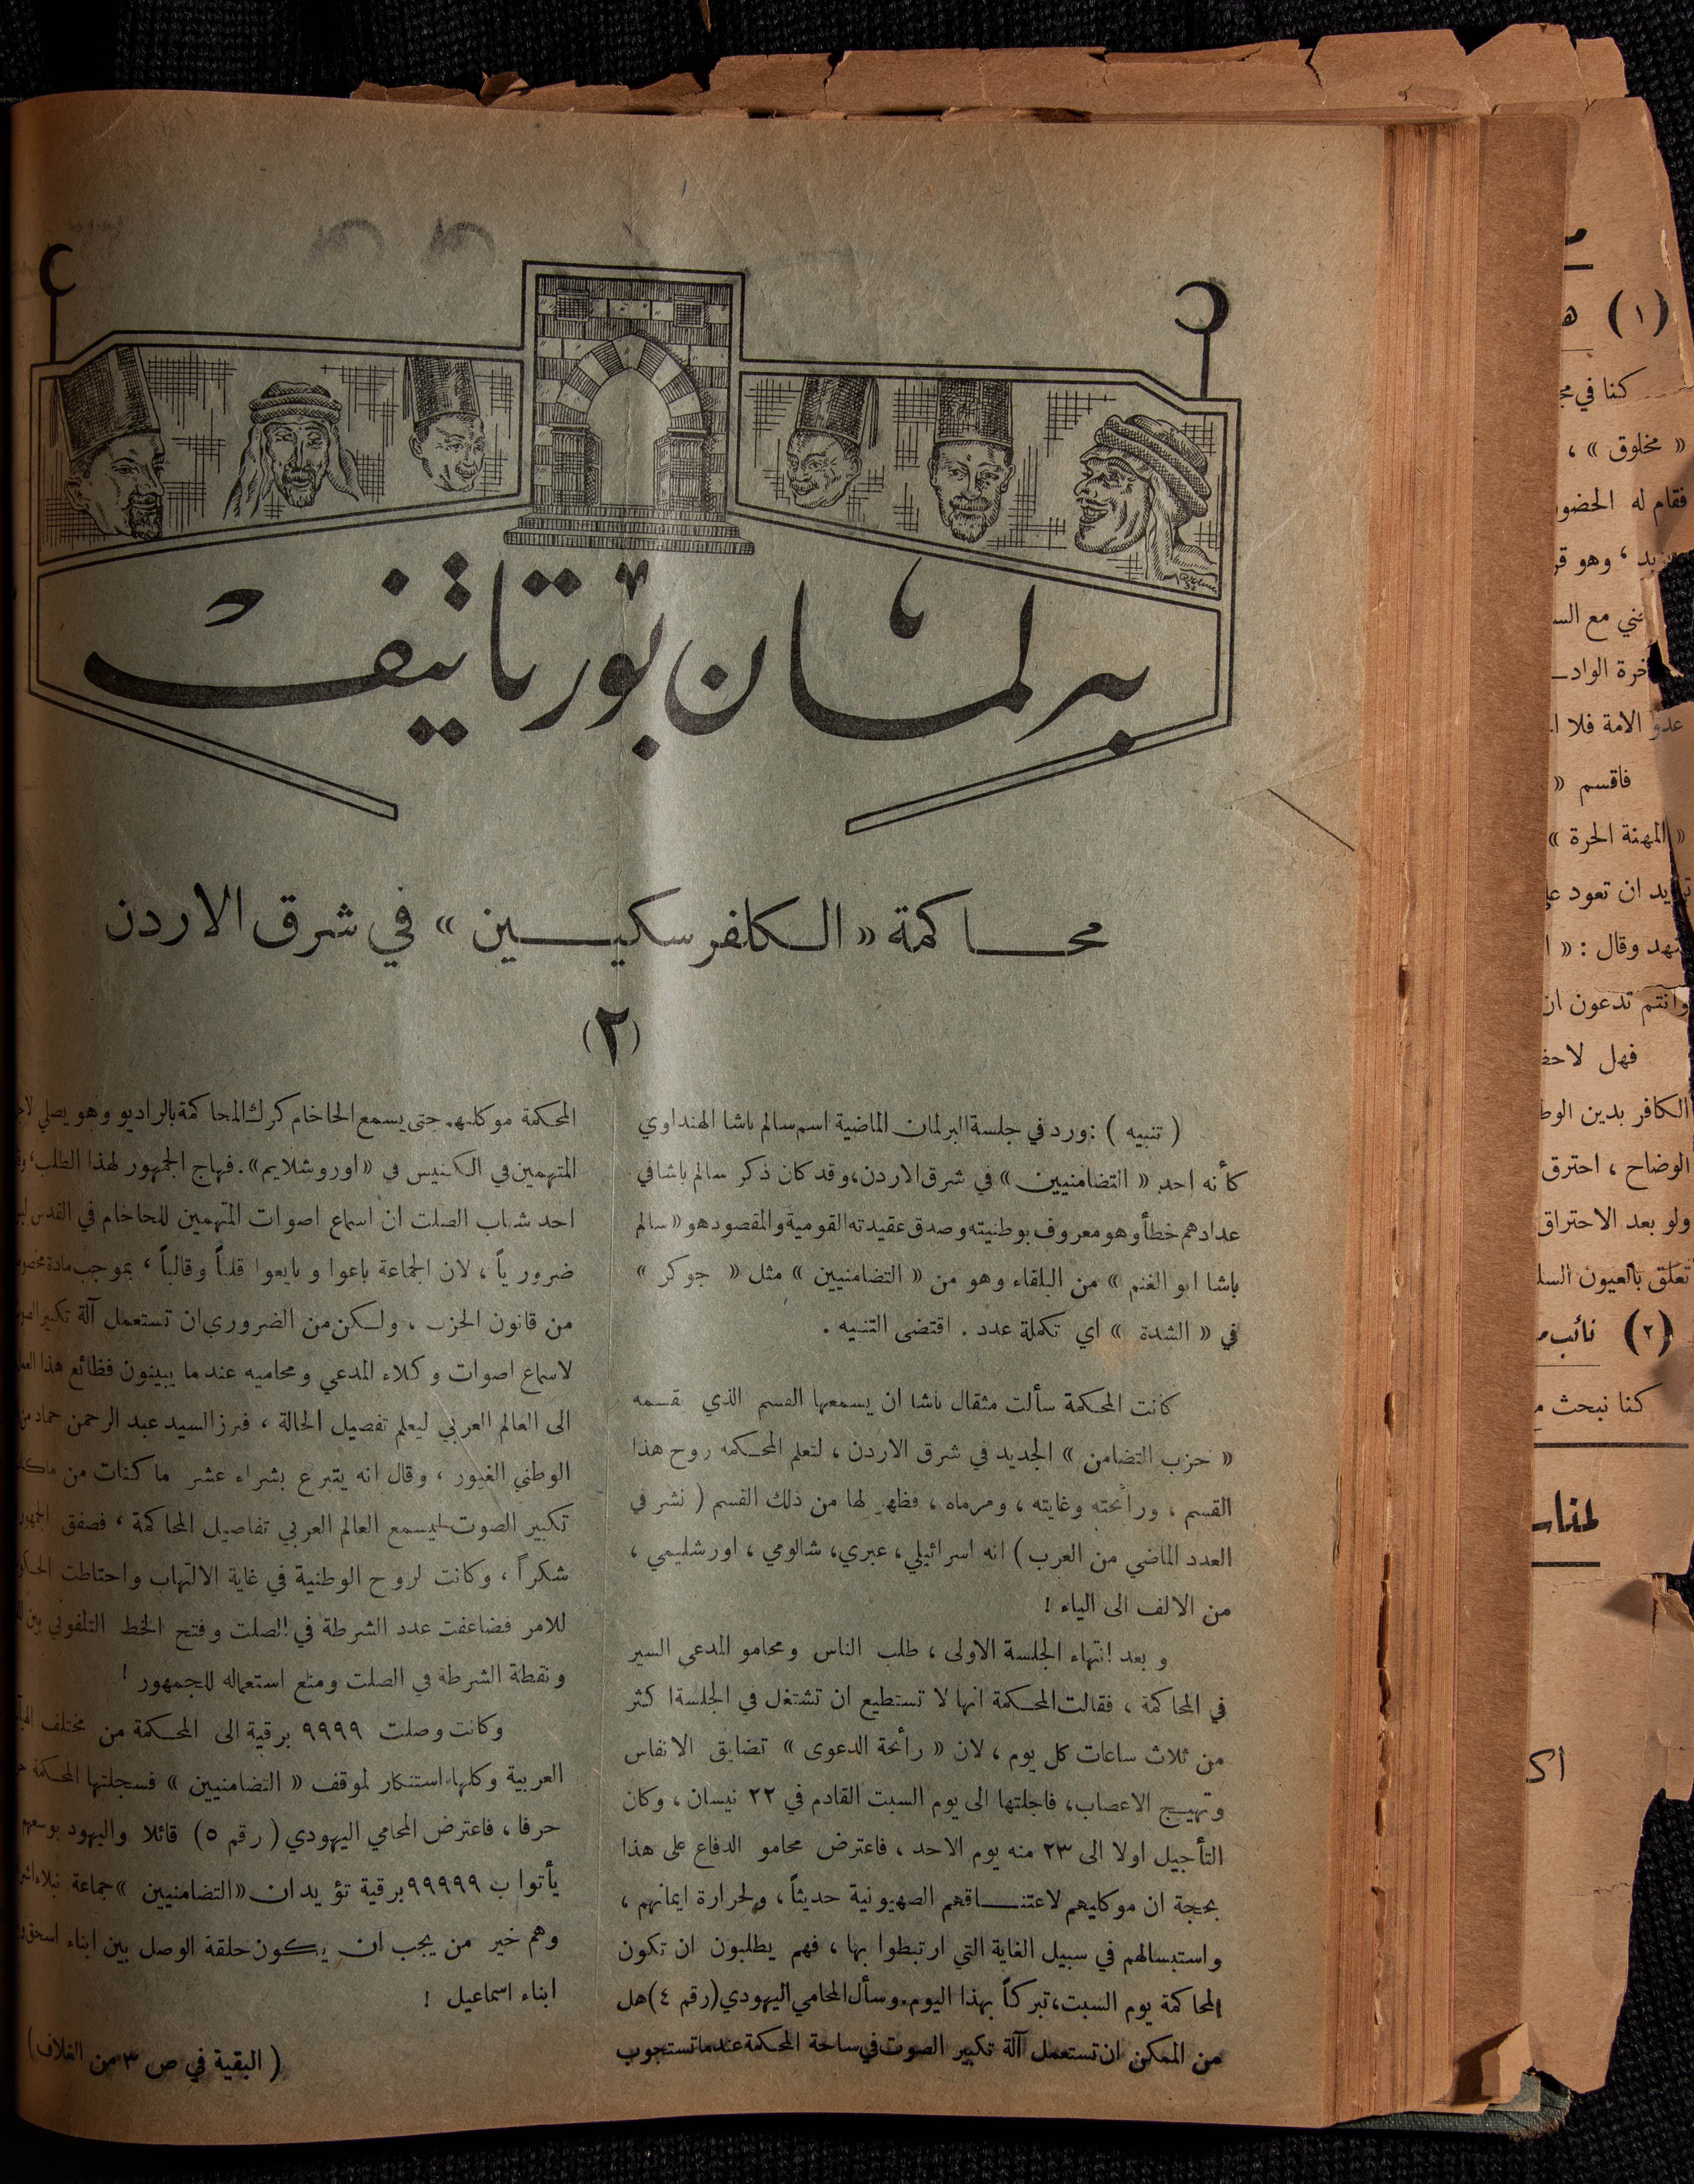 برلمان بورتاتيف
محاكمة « الكلفرسكيين » في شرق الاردن
(٢)
( تنبيه ) : ورد في جلسة البرلمان الماضية اسم سالم باشا الهنداوي
كأنه احد « التضامنيين » في شرق الاردن، وقد كان ذكر سالم باشا في
عدادهم خطأ وهو معروف بوطنيته وصدق عقيدته القومية والمقصود هو « سالم
باشا ابو الغنم » من البلقاء وهو من « التضامنيين » مثل « جوكر »
في « الشدة » اي تكملة عدد . اقتضى التنبيه .
كانت المحكمة سألت مثقال باشا ان يسمعها القسم الذي يقسمه
« حزب التضامن » الجديد في شرق الاردن ، لتعلم المحكمه روح هذا
القسم ، ورائحته وغايته ، ومرماه ، فظهر لها من ذلك القسم ( نشر في
العدد الماضي من العرب ) انه اسرائيلي، عبري، شالومي ، اورشليمي ،
من الالف الى الياء !
و بعد انتهاء الجلسة الاولى ، طلب الناس ومحامو المدعي السير
في المحاكمة ، فقالت المحكمة انها لا تستطيع ان تشتغل في الجلسة اكثر
من ثلاث ساعات كل يوم ، لان « رأئحة الدعوى » تضايق الانفاس
وتهيج الاعصاب، فاجلتها الى يوم السبت القادم في ٢٢ نيسان ، وكان
التأجيل اولا الى ٢٣ منه يوم الاحد ، فاعترض محامو الدفاع على هذا
بحجة ان موكليهم لاعتناقهم الصهيونية حديثاً ، ولحرارة ايمانهم ،
واستبسالهم في سبيل الغاية التي ارتبطوا بها ، فهم يطلبون ان تكون
المحاكمة يوم السبت، تبركاً بهذا اليوم. وسأل المحامي اليهودي (رقم ٤) هل
من الممكن ان تستعمل آلة تكبير الصوت في ساحة المحكمة عندما تستجوب
المحكمة موكليهم حتى يسمع الحاخام كرك المحاكمة بالراديو وهو يصلي
المتهمين في الكنيس في « اوروشلايم ». فهاج الجمهور لهذا الطلب،
احد شباب الصلت ان اسماع اصوات المتهمين للحاخام في القدس
ضرورياً ، لان الجماعة باعوا و بايعوا قلباً وقالباً ، بموجب مادة
من قانون الحزب ، ولكن من الضروري ان تستعمل آلة تكبير
لاسماع اصوات وكلاء المدعي ومحاميه عند ما يبينون فظائع هذا
الى العالم العربي ليعلم تفصيل الحالة ، فبرز السيد عبد الرحمن حماد
الوطني الغيور ، وقال انه يتبرع بشراء عشر ماكنات من
تكبير الصوت ليسمع العالم العربي تفاصيل المحاكمة ، فصفق
شكراً ، وكانت لروح الوطنية في غاية الالتهاب واحتاطت
للامر فضاعفت عدد الشرطة في الصلت وفتح الخط التلفوني بين
ونقطة الشرطة في الصلت ومنع استعماله للجمهور !
وكانت وصلت ٩٩٩٩ برقية الى المحكمة من مختلف
العربية وكلها استنكار لموقف « التضامنيين » فسجلتها المحكمة
حرفا ، فاعترض المحامي اليهودي ( رقم ٥ ) قائلا واليهود بوسعهم
يأتوا ب ٩٩٩٩٩ برقية تؤيد ان « التضامنيين » جماعة نبلاء
وهم خير من يجب ان يكون حلقة الوصل بين ابناء اسحق
ابناء اسماعيل !
( البقية في ص ٣ من الغلاف )
(١)
كنا في
« مخلوق » ،
فقام له الحضور
وهو
مع
عدو الامة فلا
فاقسم «
« المهنة الحرة »
ان تعود
وقال : «
وانتم تدعون ان
فهل
الكافر بدين
الوضاح ، احترق
ولو بعد الاحتراق
تعلق بالعيون
(٢) نائب
كنا نبحث